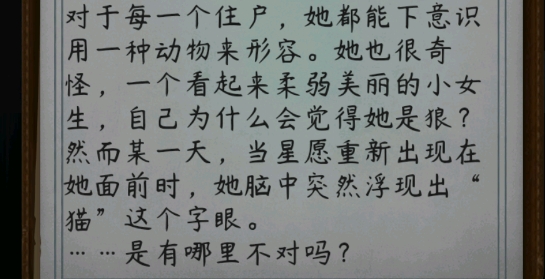 对于每一个住户，她都能下意识
用一种动物来形容。她也很奇
怪，一个看起来柔弱美丽的小女
生，自己为什么会觉得她是狼？
然而某一天，当星愿重新出现在
她面前时，她脑中突然浮现出“
猫”这个字眼。
……是有哪里不对吗？